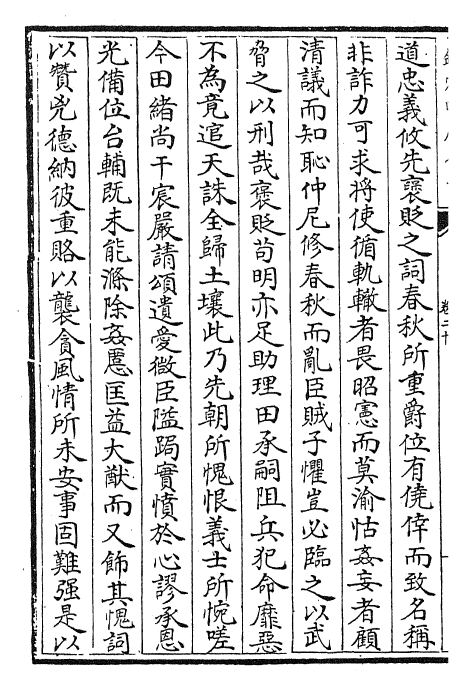 道忠義攸先褒貶之詞春秋所重爵位有僥倖而致名稱
非詐力可求將使循軌轍者畏昭憲而莫渝怙姦妄者顧
清議而知恥仲尼修春秋而亂臣賊子懼豈必臨之以武
脅之以刑哉褒貶苟明亦足助理田承嗣阻兵犯命靡惡
不為竟逭天誅全歸土壤此乃先朝所愧恨義士所惋嗟
今田緒尚干宸嚴請頌遺愛微臣隘跼實憤於心謬承恩
光備位台輔既未能滌除姦慝匡益大猷而又飾其愧詞
以贊兇德納彼重賂以襲貪風情所未安事固難强是以
卷二十